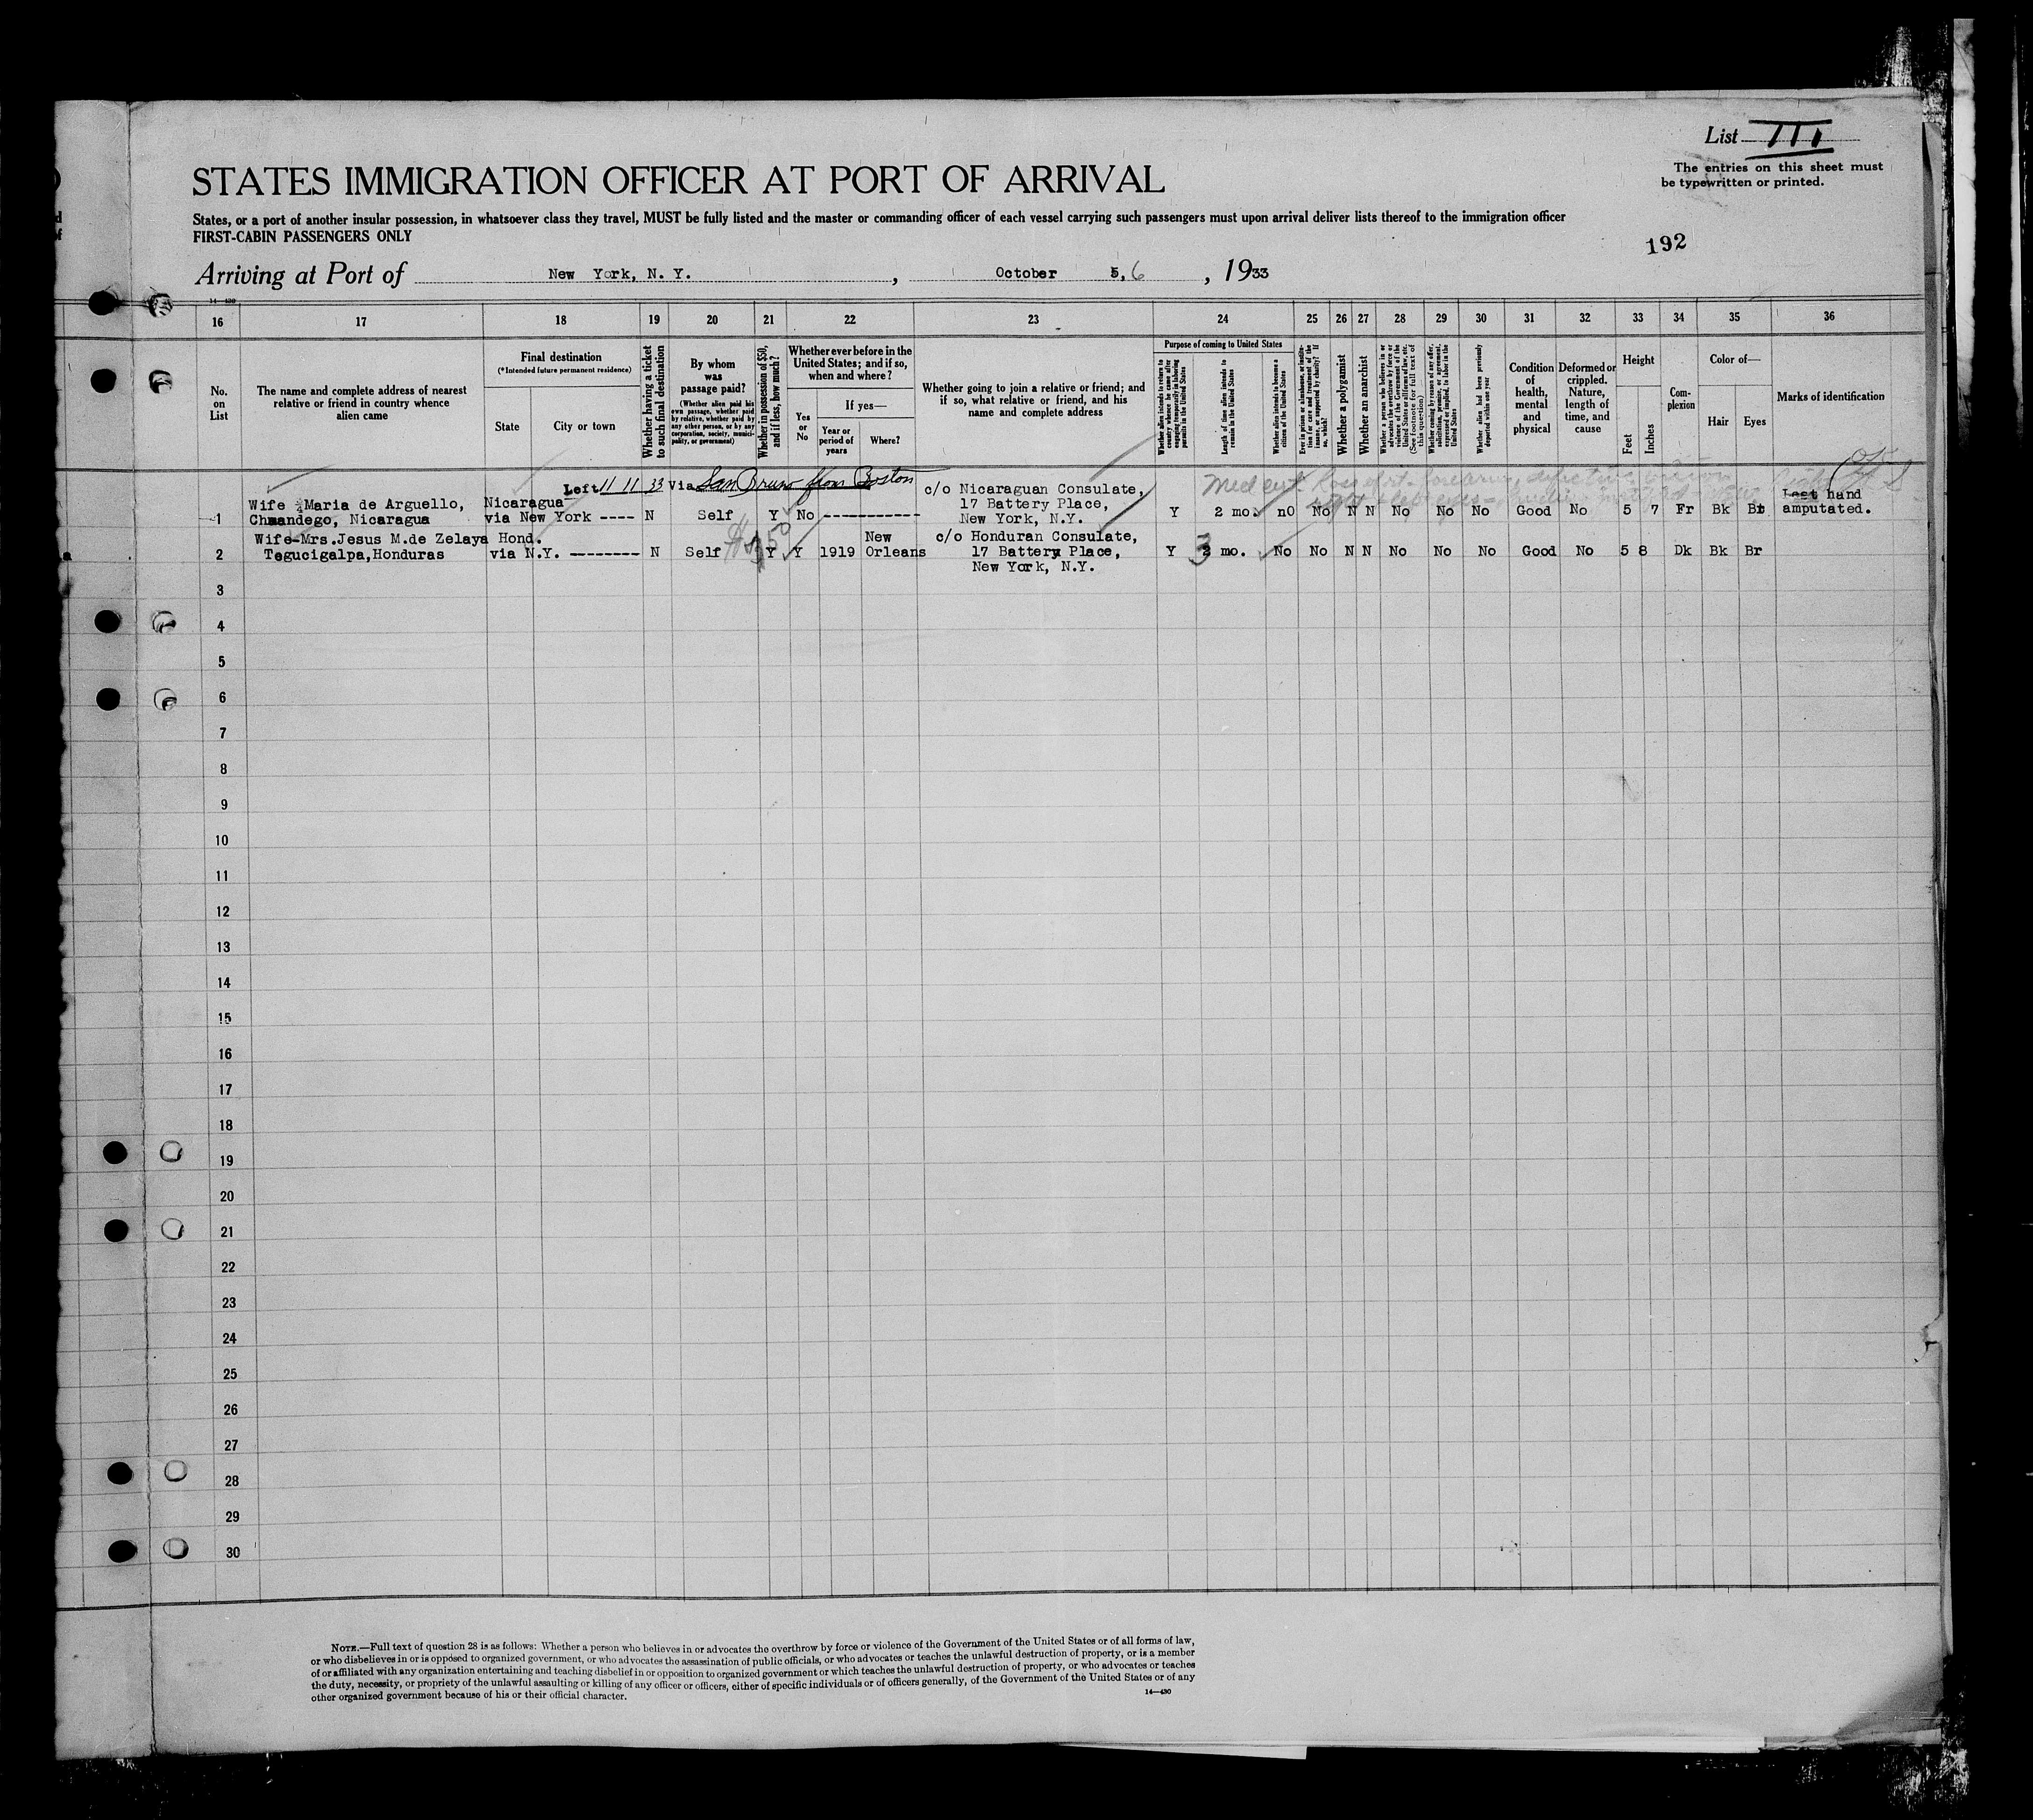 List III
The entries on this sheet must
be typewritten or printed.
STATES IMMIGRATION OFFICER AT PORT OF ARRIVAL
States, or a port of another insular possession, in whatsoever class they travel, MUST be fully listed and the master or commanding officer of each vessel carrying such passengers must upon arrival deliver lists thereof to the immigration officer
FIRST-CABIN PASSENGERS ONLY
192
Arriving at Port of New York, N. Y., October 5, 6, 1933
14—430
16 17 18 19 20 21 22 23 24 25 26 27 28 29 30 31 32 33 34 35 36
No. on List
The name and complete address of nearest relative or friend in country whence alien came
Final destination
(*Intended future permanent residence)
State
City or town
Whether having a ticket to such final destination
By whom was passage paid?
(Whether alien paid his own passage, whether paid by relative, whether paid by any other person, or by any corporation, society, municipality, or government)
Whether in possession of $50, and if less, how much?
Whether ever before in the United States; and if so, when and where?
Yes or No
If yes—
Year or period of years
Where?
Whether going to join a relative or friend; and if so, what relative or friend, and his name and complete address
Purpose of coming to United States
Whether alien intends to return to country whence he came after engaging temporarily in laboring pursuits in the United States
Length of time alien intends to remain in the United States
Whether alien intends to become a citizen of the United States
Ever in prison or almshouse, or institution for care and treatment of the insane, or supported by charity? If so, which?
Whether a polygamist
Whether an anarchist
Whether a person who believes in or advocates the overthrow by force or violence of the Government of the United States or all forms of law, etc. (See footnote for full text of this question)
Whether coming by reason of any offer, solicitation, promise, or agreement, expressed or implied, to labor in the United States
Whether alien had been previously deported within one year
Condition of health, mental and physical
Deformed or crippled. Nature, length of time, and cause
Height
Feet
Inches
Complexion
Color of—
Hair
Eyes
Marks of identification
Left 11 11 33 Via San Bruno from Boston
1 Wife Maria de Arguello, Nicaragua c/o Nicaraguan Consulate, hand
Chmandego, Nicaragua via New York ---- N Self Y No ----------- 17 Battery Place, New York, N.Y. Y 2 mo. nO No N N No No No Good No 5 7 Fr Bk Br amputated.
2 Wife-Mrs.Jesus M.de Zelaya Hond. New c/o Honduran Consulate,
Tegucigalpa,Honduras via N.Y. -------- N Self Y Y 1919 Orleans 17 Battery Place, Y 3 mo. No No N N No No No Good No 5 8 Dk Bk Br
New York, N.Y.
3
4
5
6
7
8
9
10
11
12
13
14
15
16
17
18
19
20
21
22
23
24
25
26
27
28
29
30
NOTE.—Full text of question 28 is as follows: Whether a person who believes in or advocates the overthrow by force or violence of the Government of the United States or of all forms of law,
or who disbelieves in or is opposed to organized government, or who advocates the assassination of public officials, or who advocates or teaches the unlawful destruction of property, or is a member
of or affiliated with any organization entertaining and teaching disbelief in or opposition to organized government or which teaches the unlawful destruction of property, or who advocates or teaches
the duty, necessity, or propriety of the unlawful assaulting or killing of any officer or officers, either of specific individuals or of officers generally, of the Government of the United States or of any
other organized government because of his or their official character.
14—430